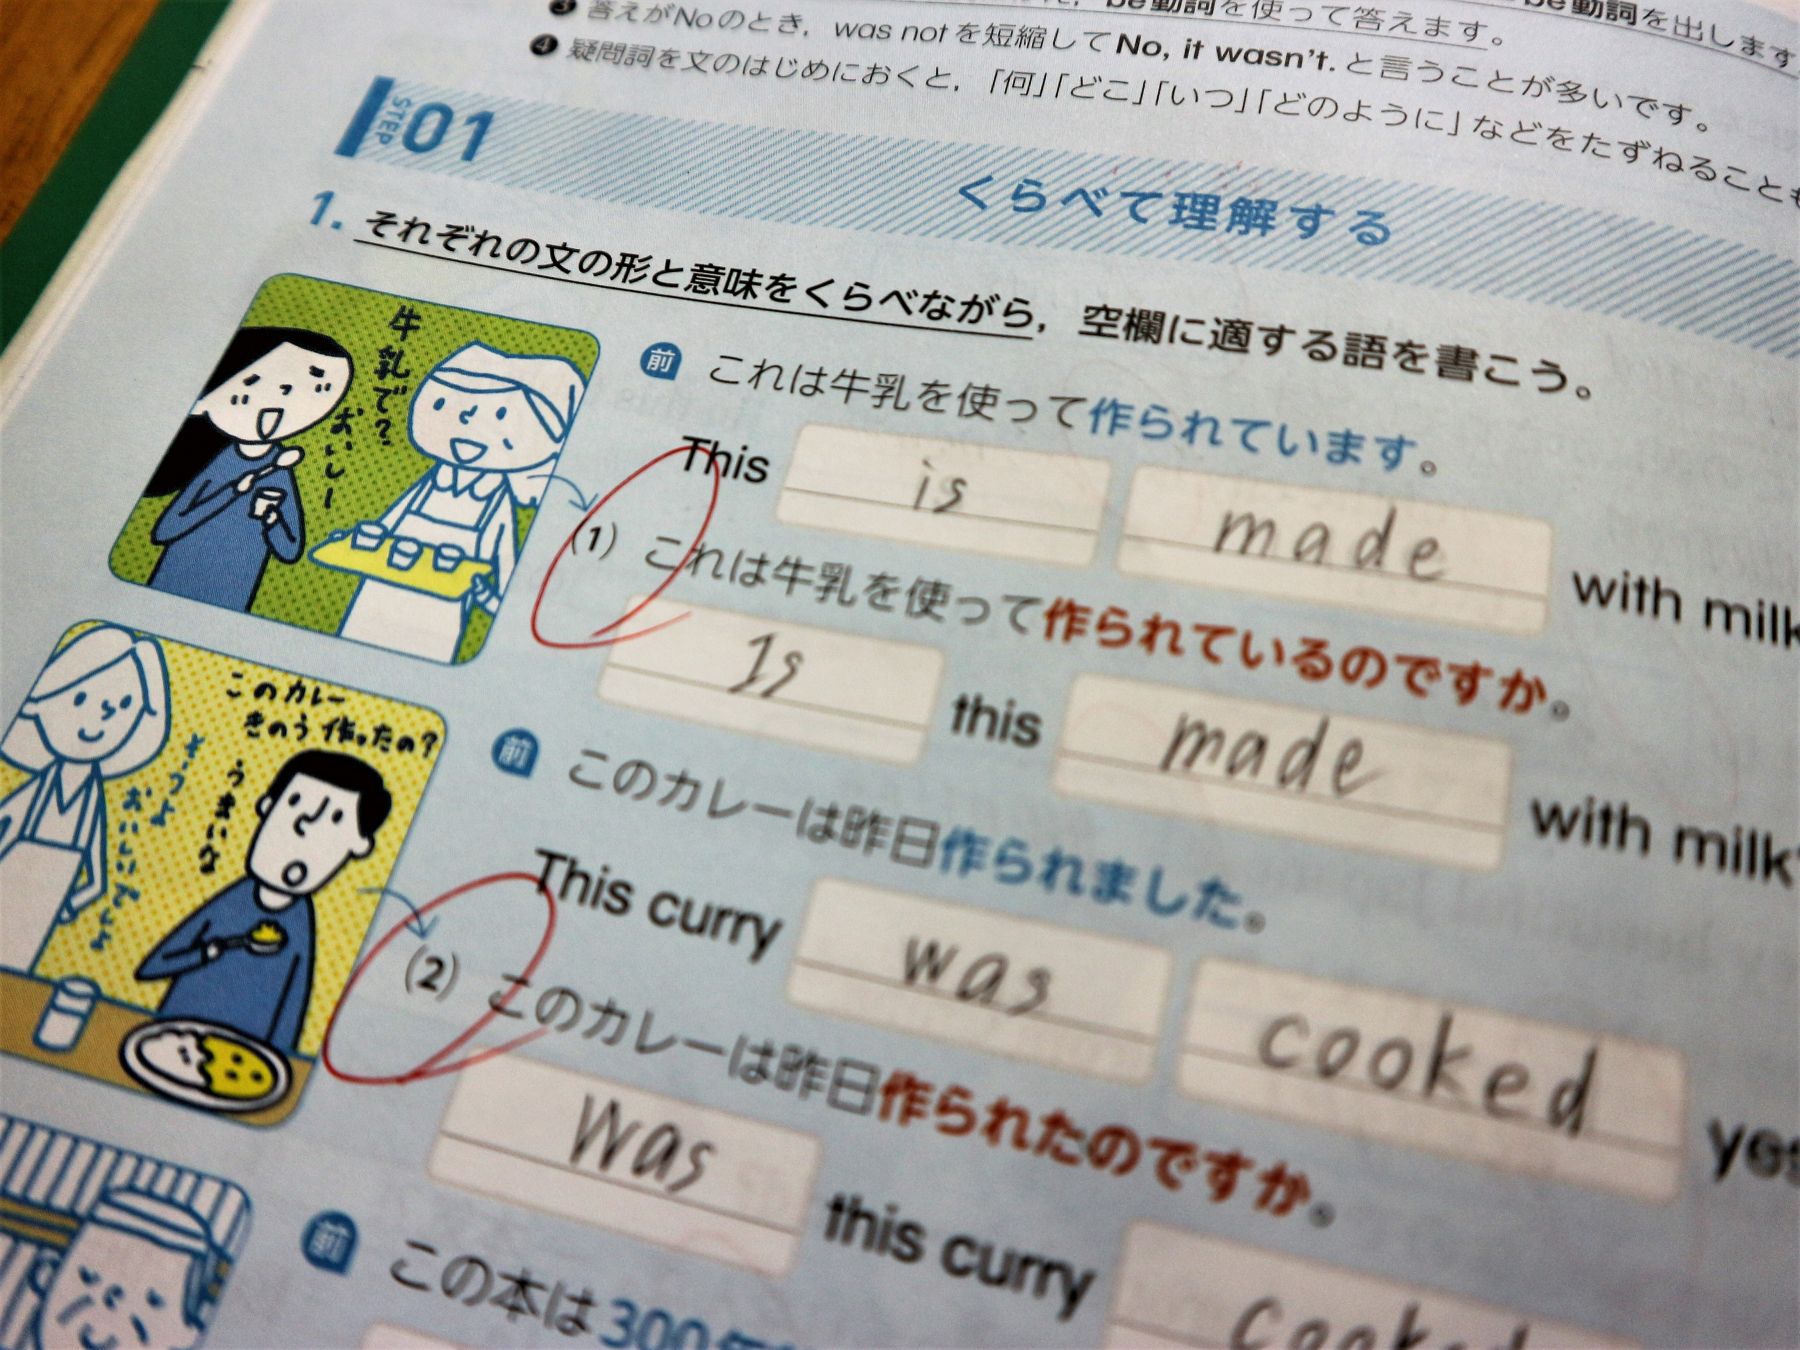 be動詞を使って答えます。 be動詞を出します
❸ 答えがNoのとき，was notを短縮してNo, it wasn't.と言うことが多いです。
❹ 疑問詞を文のはじめにおくと，「何」「どこ」「いつ」「どのように」などをたずねることも
STEP 01
くらべて理解する
1. それぞれの文の形と意味をくらべながら，空欄に適する語を書こう。
牛乳で？
おいしー
前 これは牛乳を使って作られています。
This is made with milk
(1) これは牛乳を使って作られているのですか。
Is this made with milk
このカレー
きのう作ったの？
うまいな
そうよ
おいしいでしょ
前 このカレーは昨日作られました。
This curry was cooked yes
(2) このカレーは昨日作られたのですか。
Was this curry cooked
前 この本は300年